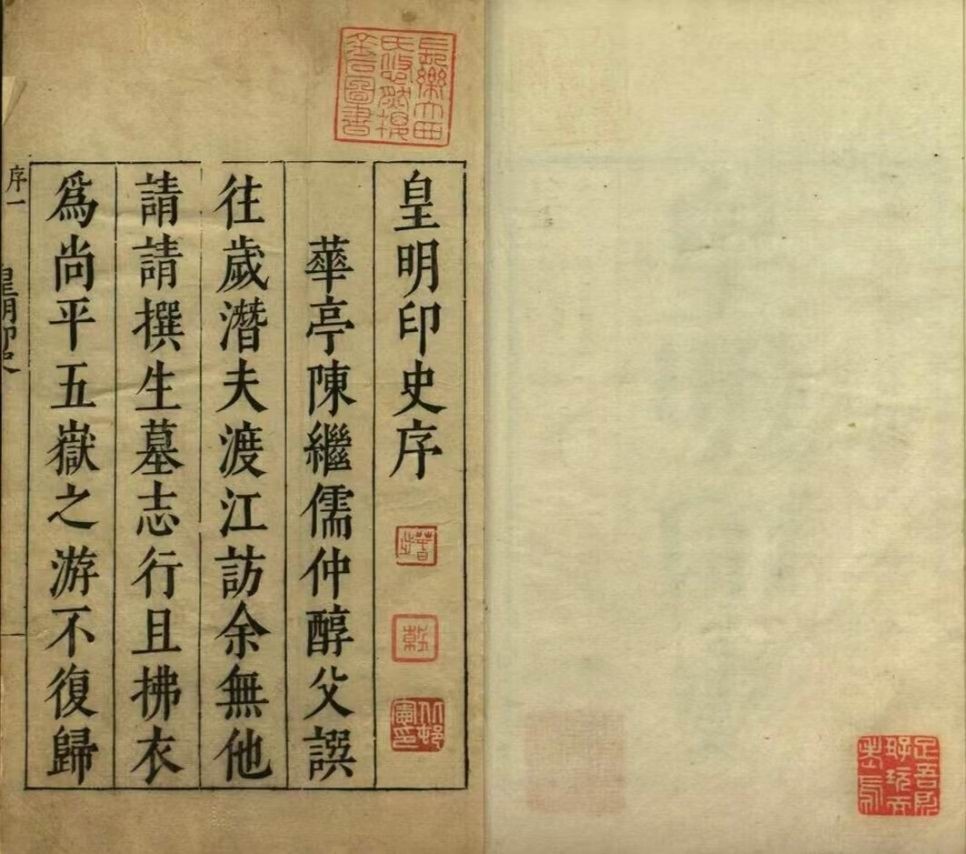 足吾所
好玩而
老焉
皇明印史序
華亭陳繼儒仲醇父譔
往歲潛夫渡江訪余無他
請請撰生墓志行且拂衣
爲尚平五嶽之游不復歸
序一
皇明印史